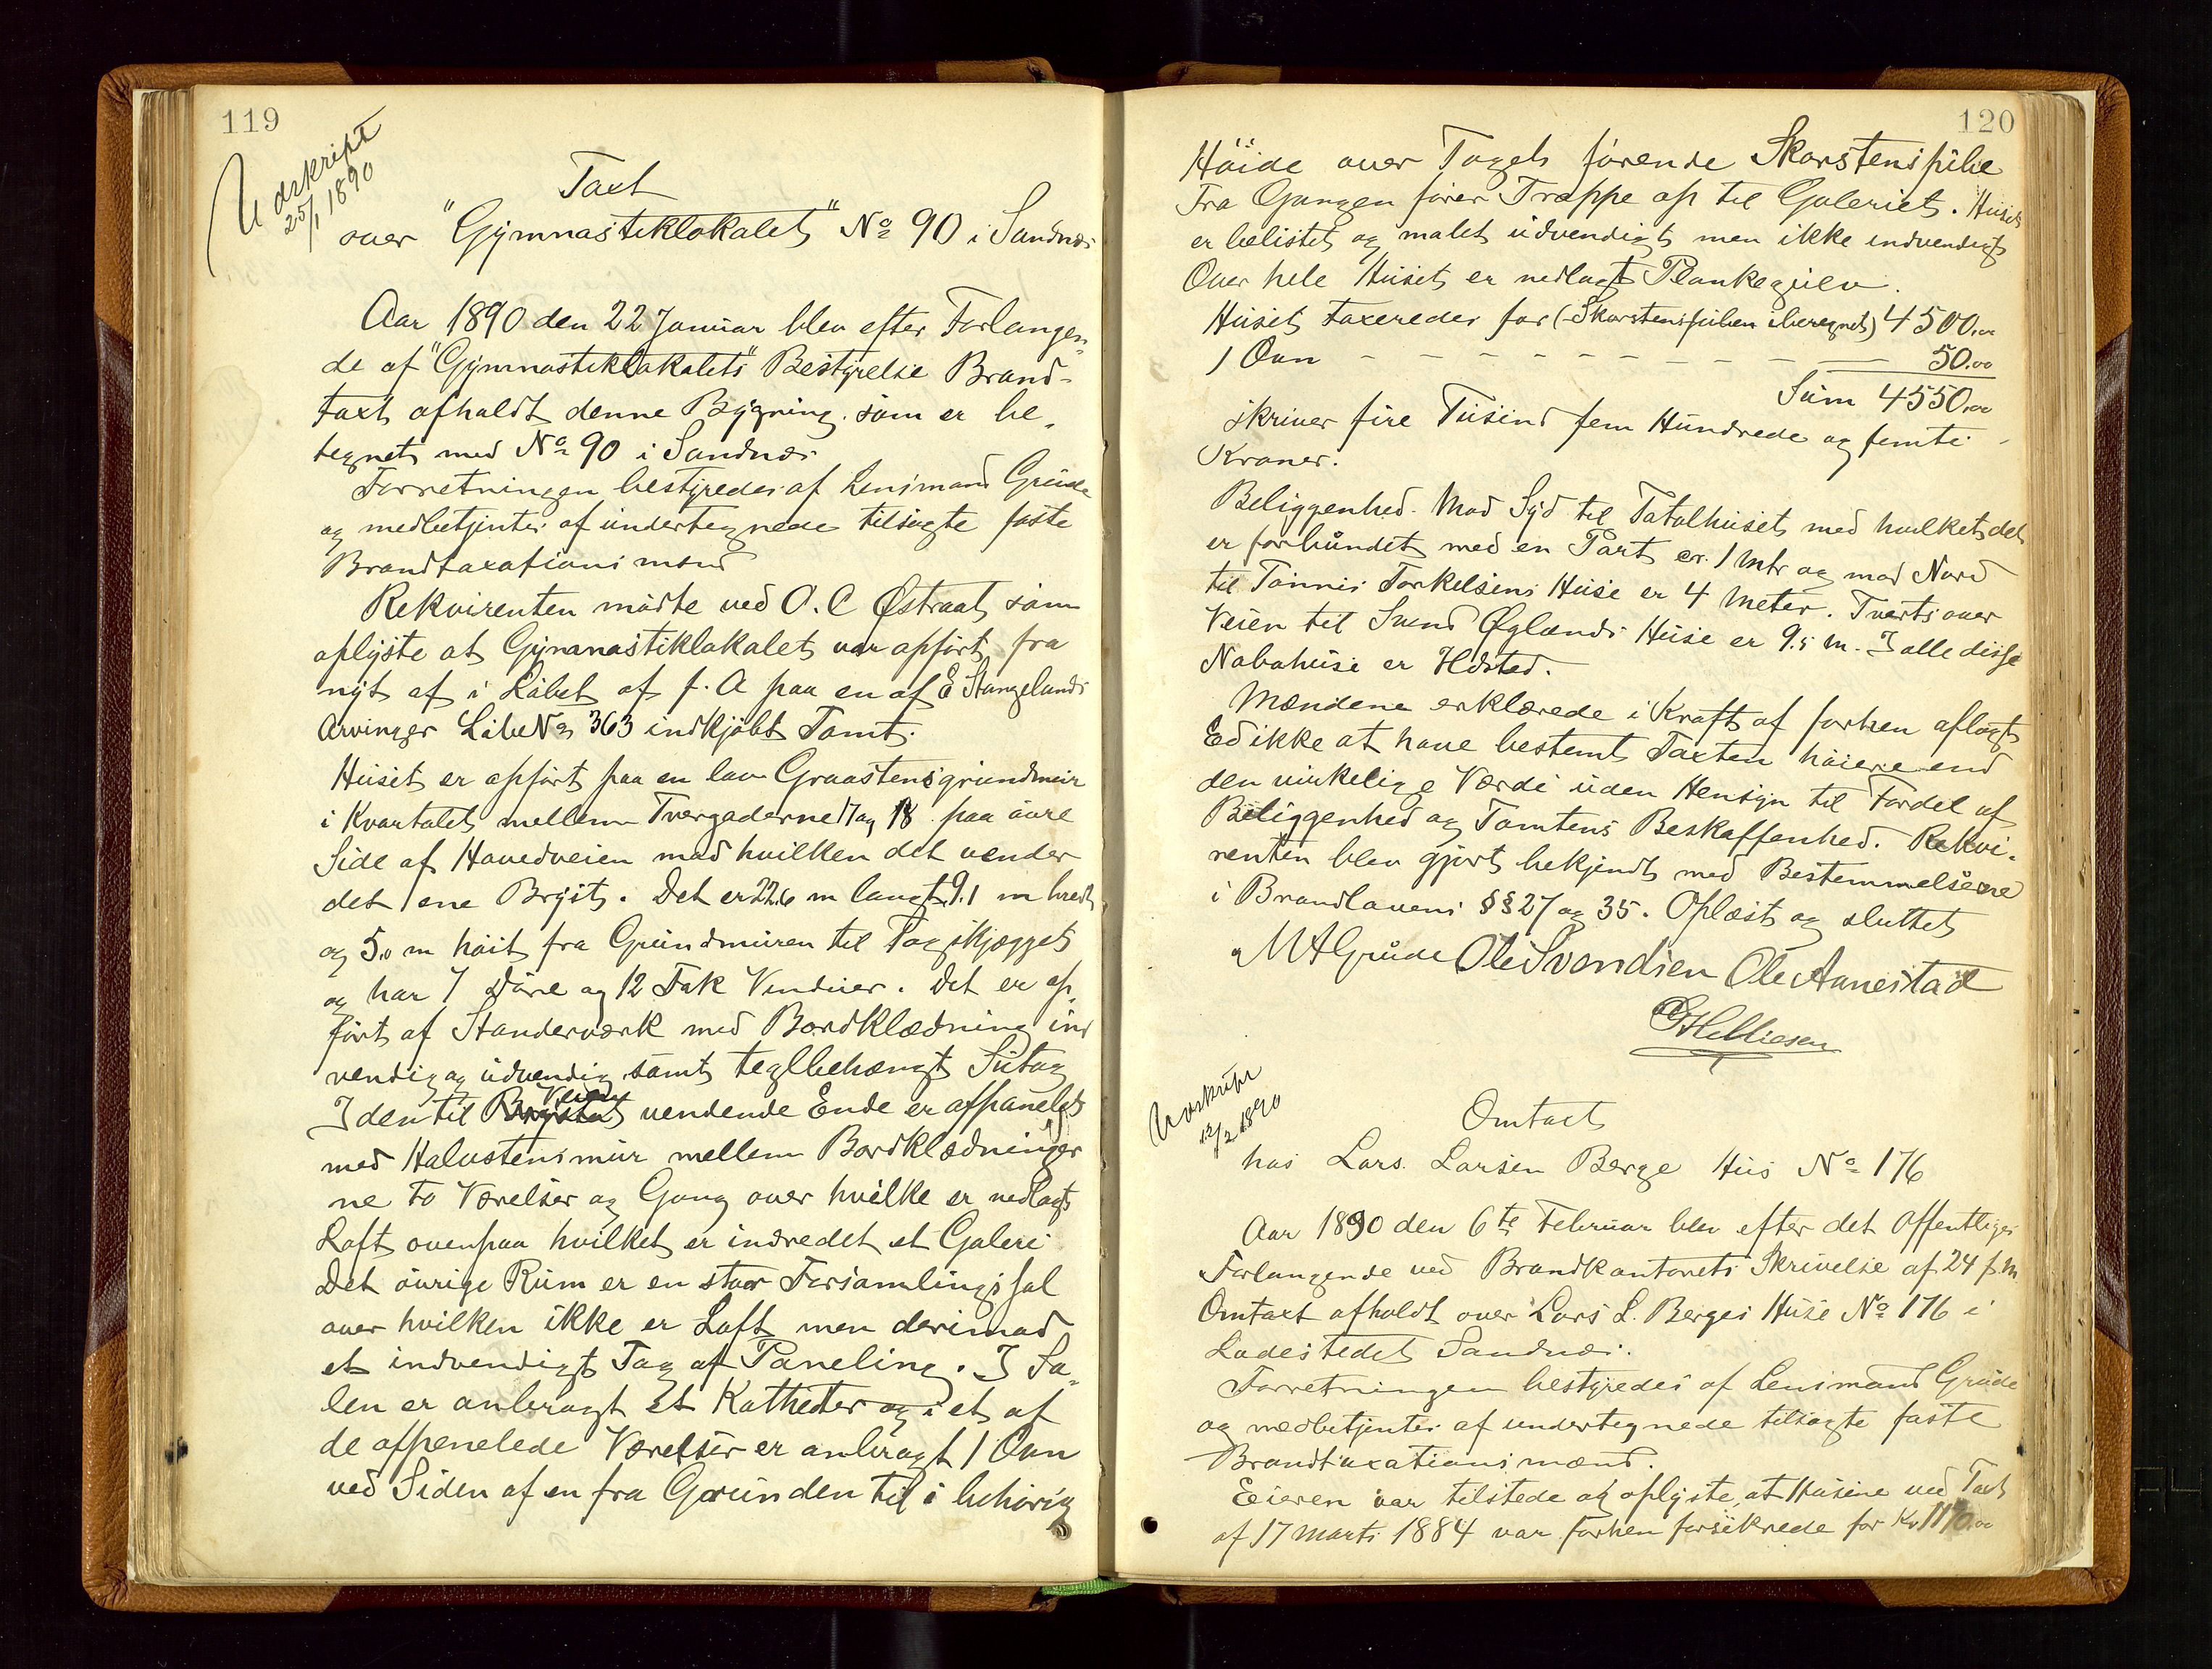 119
Udskript
25/1 1890
Taxt
over "Gymnastiklokalet" No 90 i Sandnæs
Aar 1890 den 22 Januar blev efter Forlangen-
de af "Gymnastiklokalets" Bestyrelse Brand-
taxt afholdt denne Bygning som er be-
tegnet med No 90 i Sandnæs
Forretningen bestyredes af Lensmand Grude
og medbetjentes af undertegnede tilsagte faste
Brandtaxationsmænd
Rekvirenten mødte ved O. C Østraat som
oplyste at Gymnastiklokalet var opført fra
nyt af i Løbet af f. A paa en af E Stangelands
Arvinger Løbe No 363 indkjøbt Tomt.
Huset er opført paa en lav Graastensgrundmur
i Kvartalet mellem Tvergaderne 17 og 18 paa øvre
Side af Hovedveien mod hvilken det vender
det ene Bryst. Det er 22.6 m langt 9.1 m bredt
og 5.0 m høit fra Grundmuren til Tagskjægget
og har 7 Døre og 12 Fak Vinduer. Det er op-
ført af Standerværk med Bordklædning ind
vendig og udvendig samt teglbehængt Sutag
I den til Veien vendende Ende er afpanelet
med Halvstensmur mellem Bordklædninger
ne to Værelser og Gang over hvilke er nedlagt
Loft ovenpaa hvilket er indredet et Galeri
Det øvrige Rum er en stor Forsamlingssal
over hvilken ikke er Loft men derimod
et indvendigt Tag af Paneling. I Sa-
len er anbragt et Katheter og i et af
de afpenelede Værelser er anbragt 1 Ovn
ved Siden af en fra Grunden til i behørig
120
Høide over Taget førende Skorstenspibe
Fra Gangen fører Trappe op til Galeriet. Huset
er belistet og malet udvendigt men ikke indvendigt
Over hele Huset er nedlagt Plankegulv.
Huset taxeredes for (Skorstenspiben iberegnet) 4500.00
1 Ovn - - - - - - - - - - 50.00
Sum 4550.00
skriver fire Tusind fem Hundrede og femti
Kroner.
Beliggenhed. Mod Syd til Totalhuset med hvilket det
er forbundet med en Port er 1 mtr og mod Nord
til Tønnes Torkelsens Huse er 4 Meter. Tverts over
Veien til Svend Øglænds Huse er 9.5 m. I alle disse
Nabohuse er Ildsted.
Mændene erklærede i Kraft af forhen aflagt
Ed ikke at have bestemt Taxten høiere end
den virkelige Værdi uden Hensyn til Fordel af
Beliggenhed og Tomtens Beskaffenhed. Rekvi-
renten blev gjort bekjendt med Bestemmelserne
i Brandlovens §§ 27 og 35. Oplæst og sluttet
M A Grude Ole Svendsen Ole Aanestad
G Helliesen
Udskript
12/2 1890
Omtaxt
hos Lars Larsen Berge Hus No 176
Aar 1890 den 6te Februar blev efter det Offentliges
Forlangende ved Brandkontorets Skrivelse af 24 f. M.
Omtaxt afholdt over Lars L. Berges Huse No 176 i
Ladestedet Sandnæs.
Forretningen bestyredes af Lensmand Grude
og medbetjentes af undertegnede tilsagte faste
Brandtaxationsmænd.
Eieren var tilstede og oplyste, at Husene ved Taxt
af 17 Marts 1884 var forhen forsikrede for Kr 1170.00